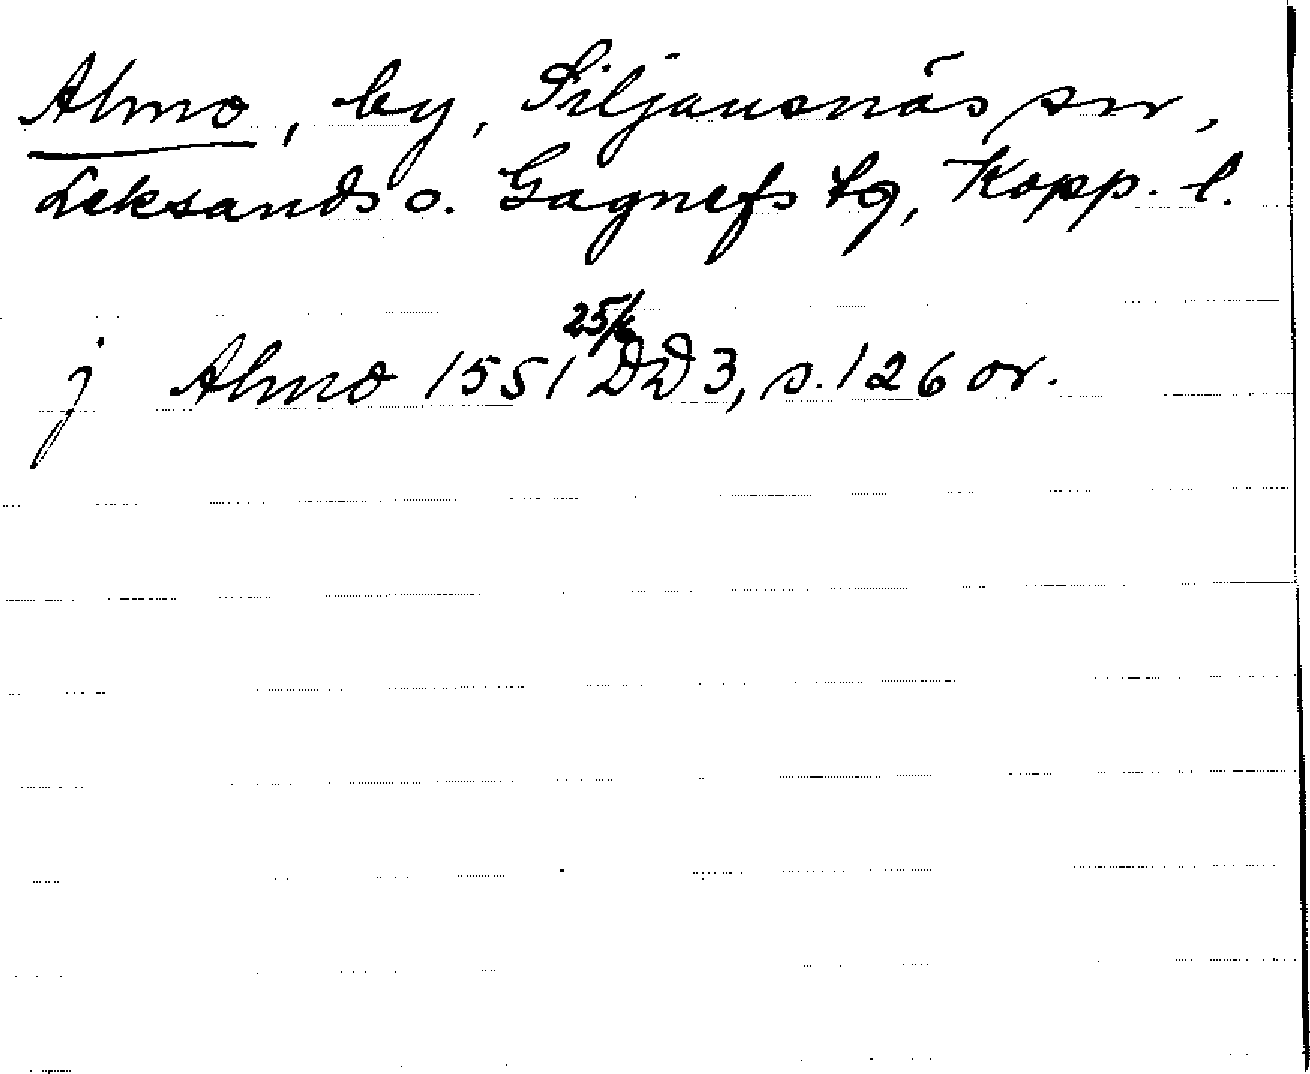 Almo, by, Siljansnäs sn,
Leksands o. Gagnefs tg, Kopp. l.
25/6
j Almo 1551 DD 3, s. 126 or.